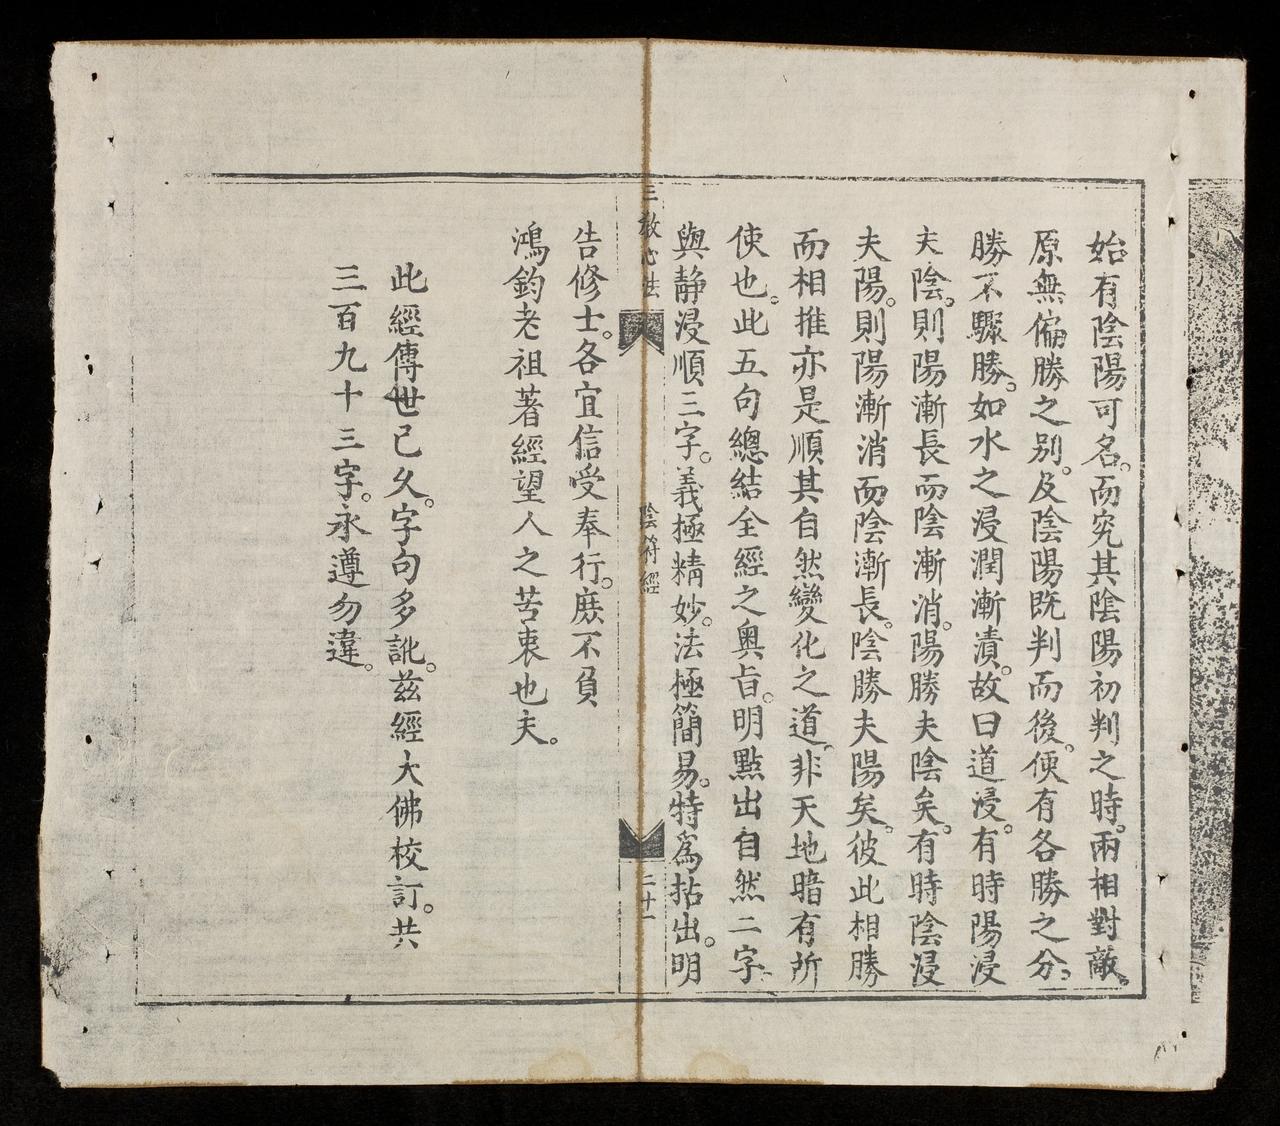 始有陰陽可名。而究其陰陽初判之時。兩相對敵。
原無偏勝之别。及陰陽既判而後。便有各勝之分。
勝不驟勝。如水之浸潤漸漬。故曰道浸。有時陽浸
夫陰。則陽漸長而陰漸消。陽勝夫陰矣。有時陰浸
夫陽。則陽漸消而陰漸長。陰勝夫陽矣。彼此相勝
而相推亦是順其自然變化之道。非天地暗有所
使也。此五句總結全經之奥旨。明點出自然二字。
與静浸順三字。義極精妙。法極簡易。特爲拈出。明
三教心法
陰符經
二十一
告修士。各宜信受奉行。庶不負
鴻鈞老祖著經望人之苦衷也夫。
此經傳世已久。字句多訛。兹經大佛校訂。共
三百九十三字。永遵勿違。